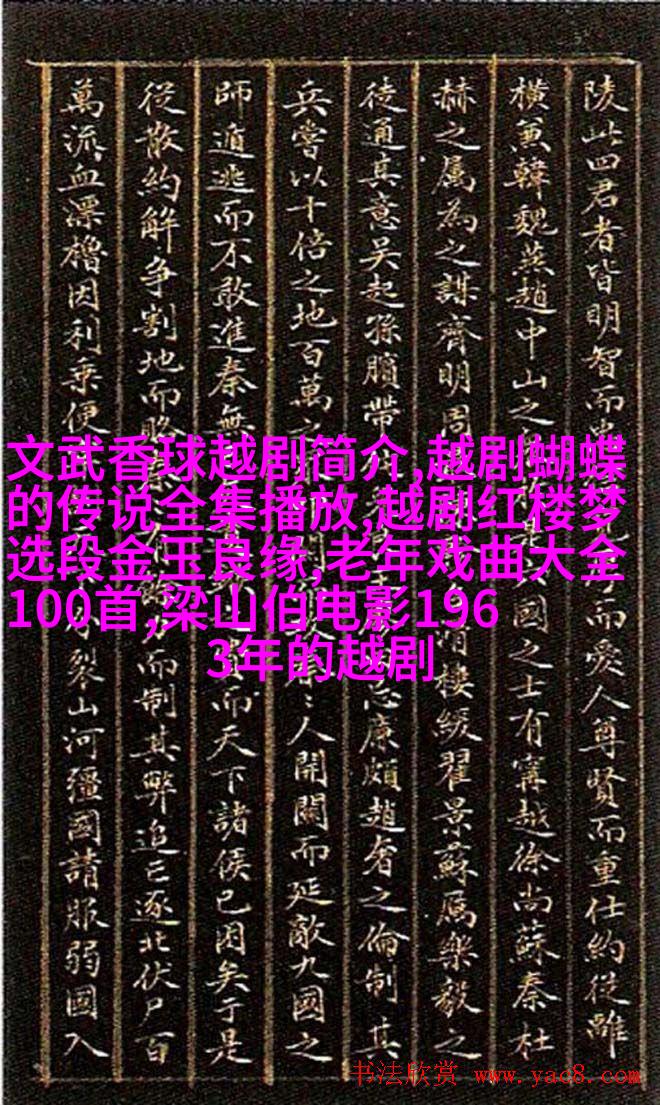 陵此四君者皆明智而 而愛人尊賢而重仕約從離
橫兼韓魏燕趙中山之 國之士有甯越徐尚蘇秦杜
赫之屬為之謀齊明周 樓緩翟景蘇厲樂毅之
徒通其意吳起孫臏帶 忌廉頗趙奢之倫制其
兵嘗以十倍之地百萬之 人開關而延敵九國之
師遁逃而不敢進秦無 而天下諸侯已困矣于是
從散約解爭割地而賂 而制其弊追亡逐北伏尸百
萬流血漂櫓因利乘便 裂山河彊國請服弱國入
文武香球越剧简介,越剧蝴蝶
的传说全集播放,越剧红楼梦
选段金玉良缘,老年戏曲大全
100首,梁山伯电影196
3年的越剧
书法欣赏 www.yac8.com